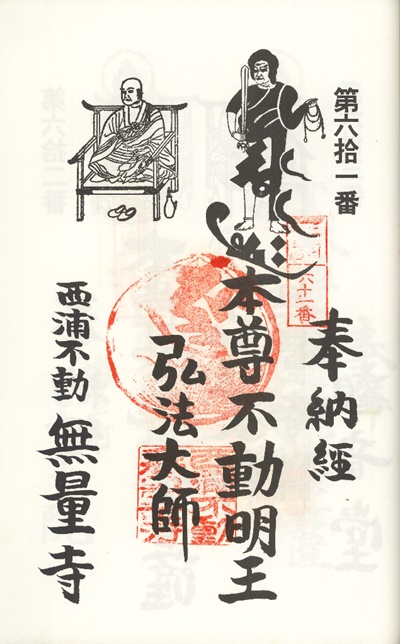 第六拾一番
奉納経
六十一番
本尊不動明王
弘法大師
西浦不動 無量寺